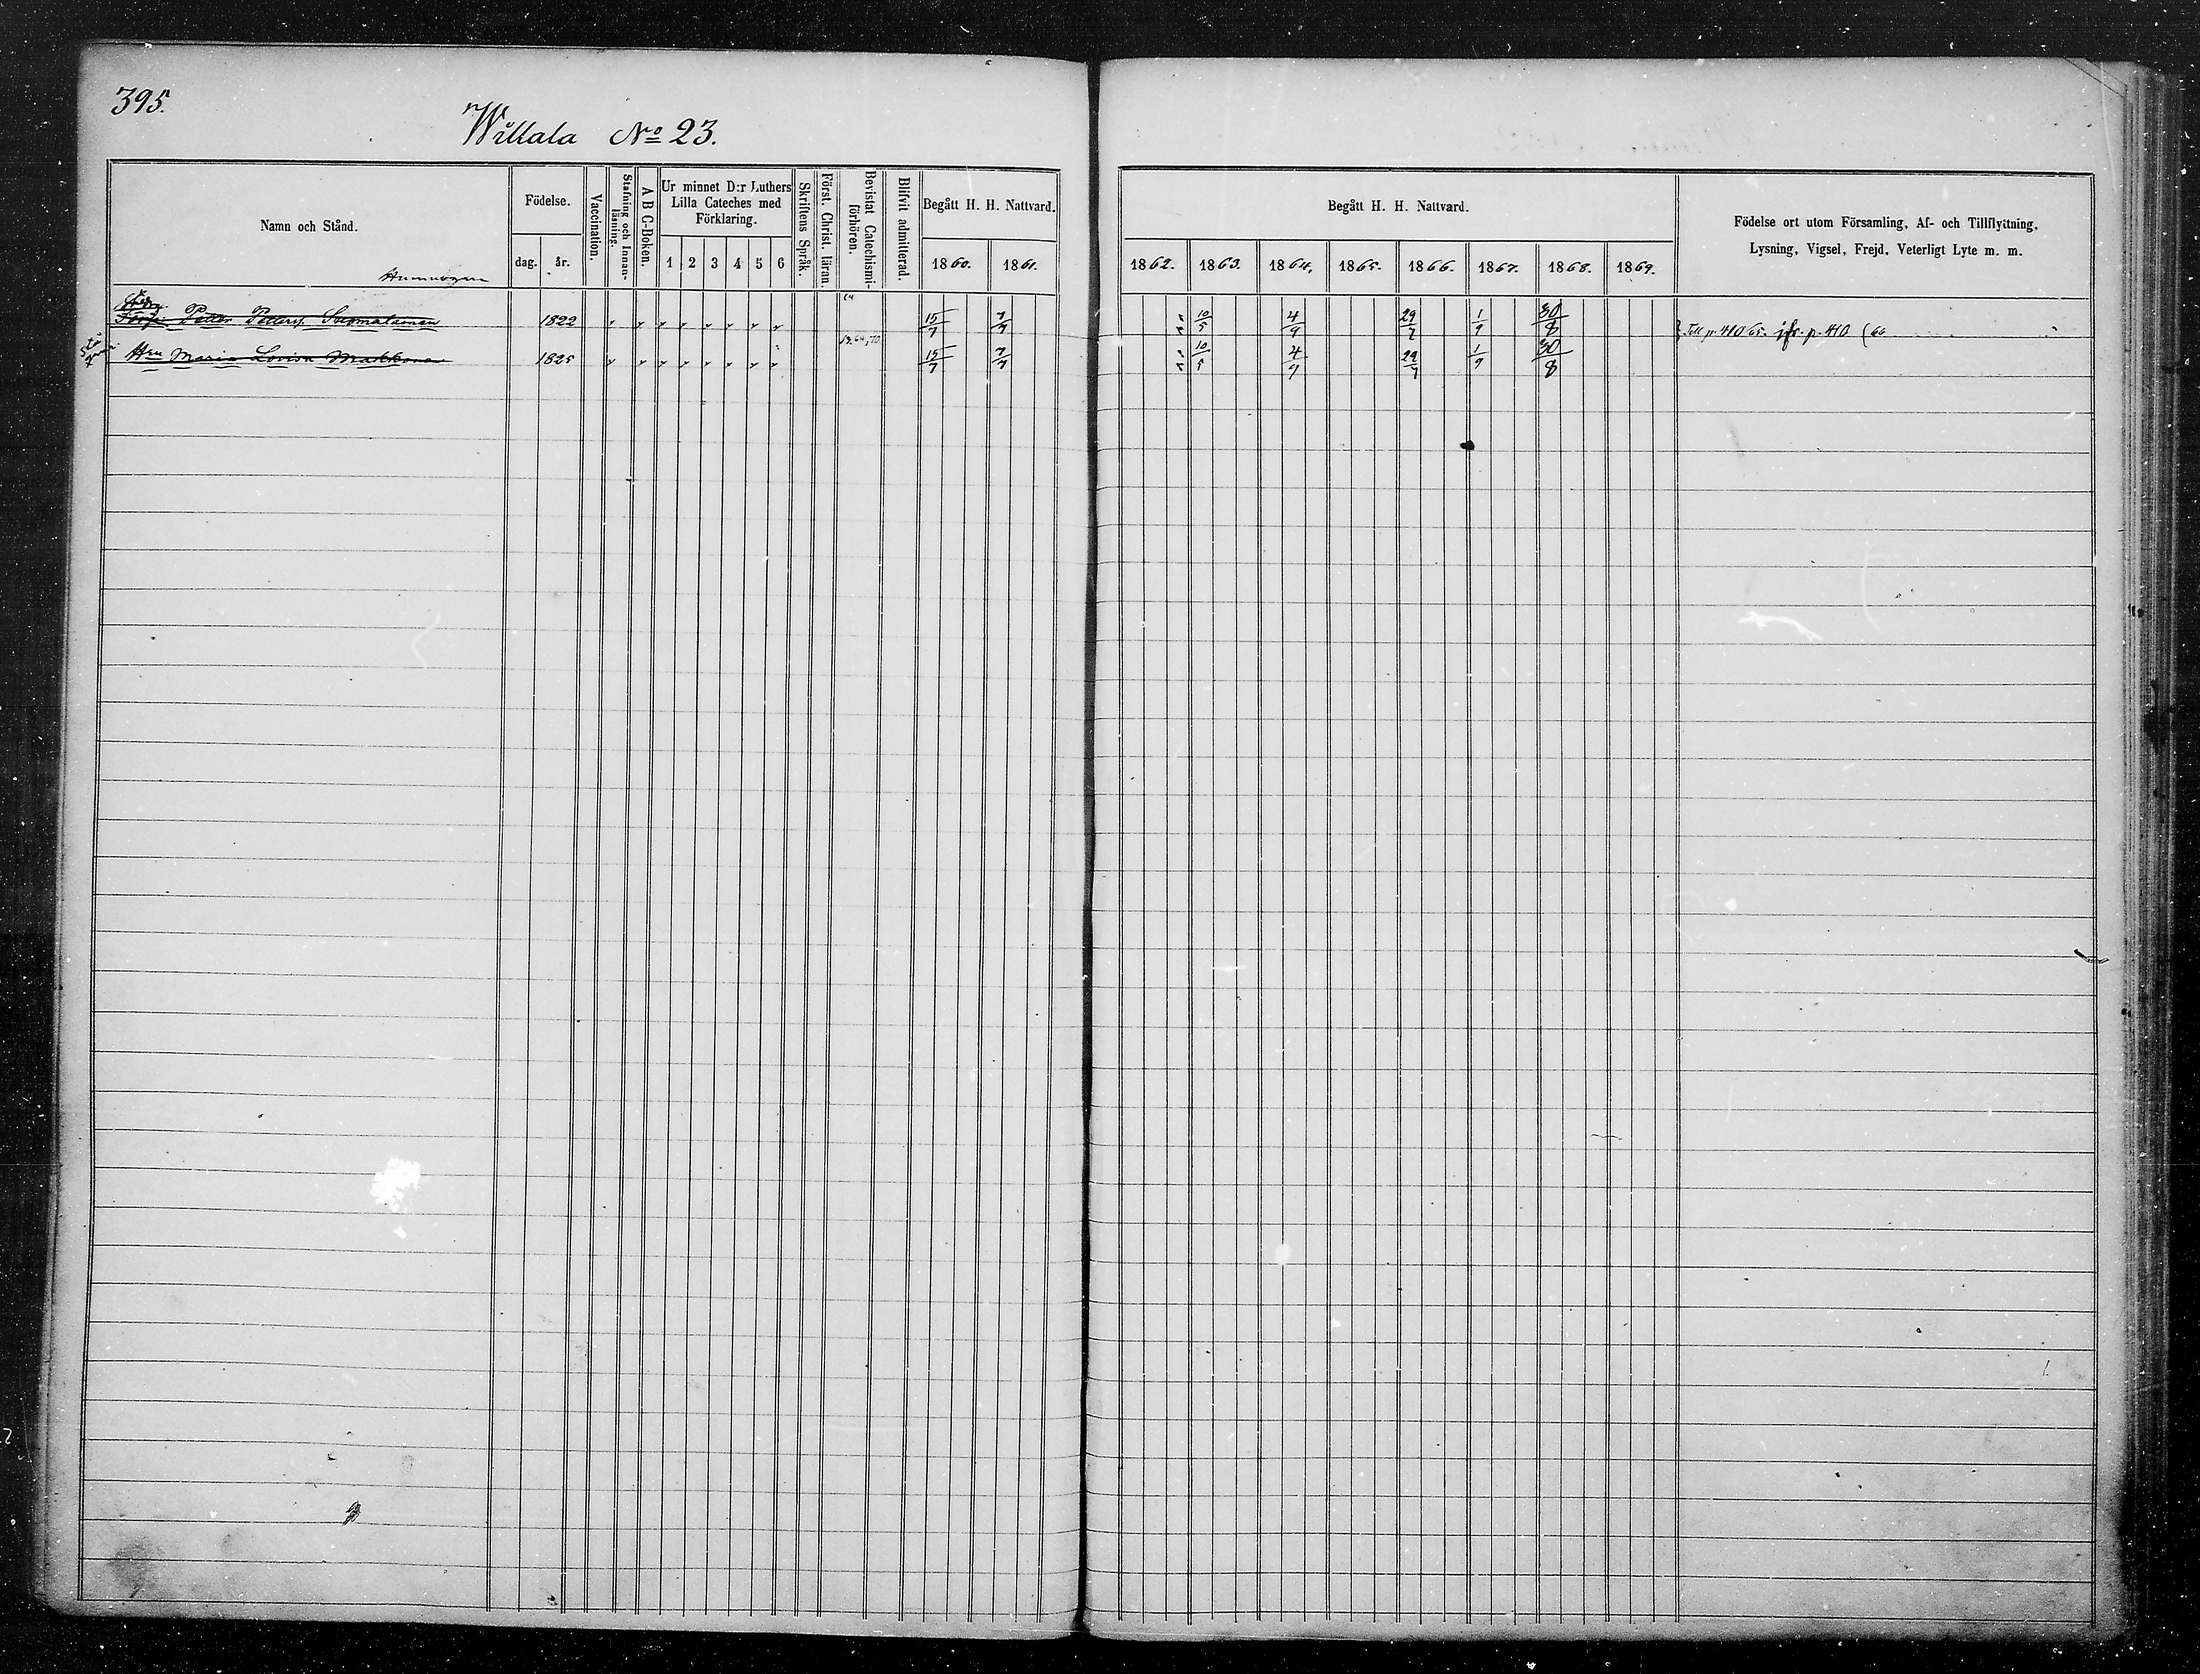 395.
Willala No 23.
Namn och Stånd.
Födelse.
dag. år.
Vaccination.
Stafning och Innan-läsning.
A B C-Boken.
Ur minnet D:r Luthers
Lilla Cateches med
Förklaring.
1 2 3 4 5 6
Skriftens Språk.
Först. Christ. läran.
Bevistat Catechismi-förhören.
Blifvit admitterad.
Begått H. H. Nattvard.
1860. 1861.
Begått H. H. Nattvard.
1862. 1863. 1864. 1865. 1866. 1867. 1868. 1869.
Födelse ort utom Församling, Af- och Tillflyttning,
Lysning, Vigsel, Frejd, Veterligt Lyte m. m.
Petter Petterss. Suomalainen 1822 15/7 7/7 10/5 4/9 29/7 1/9 30/8 Till p. 410 65. jfr. p. 410 (66
Hru Maria Lovisa Makkonen 1825 15/7 7/7 10/5 4/9 29/7 1/9 30/8